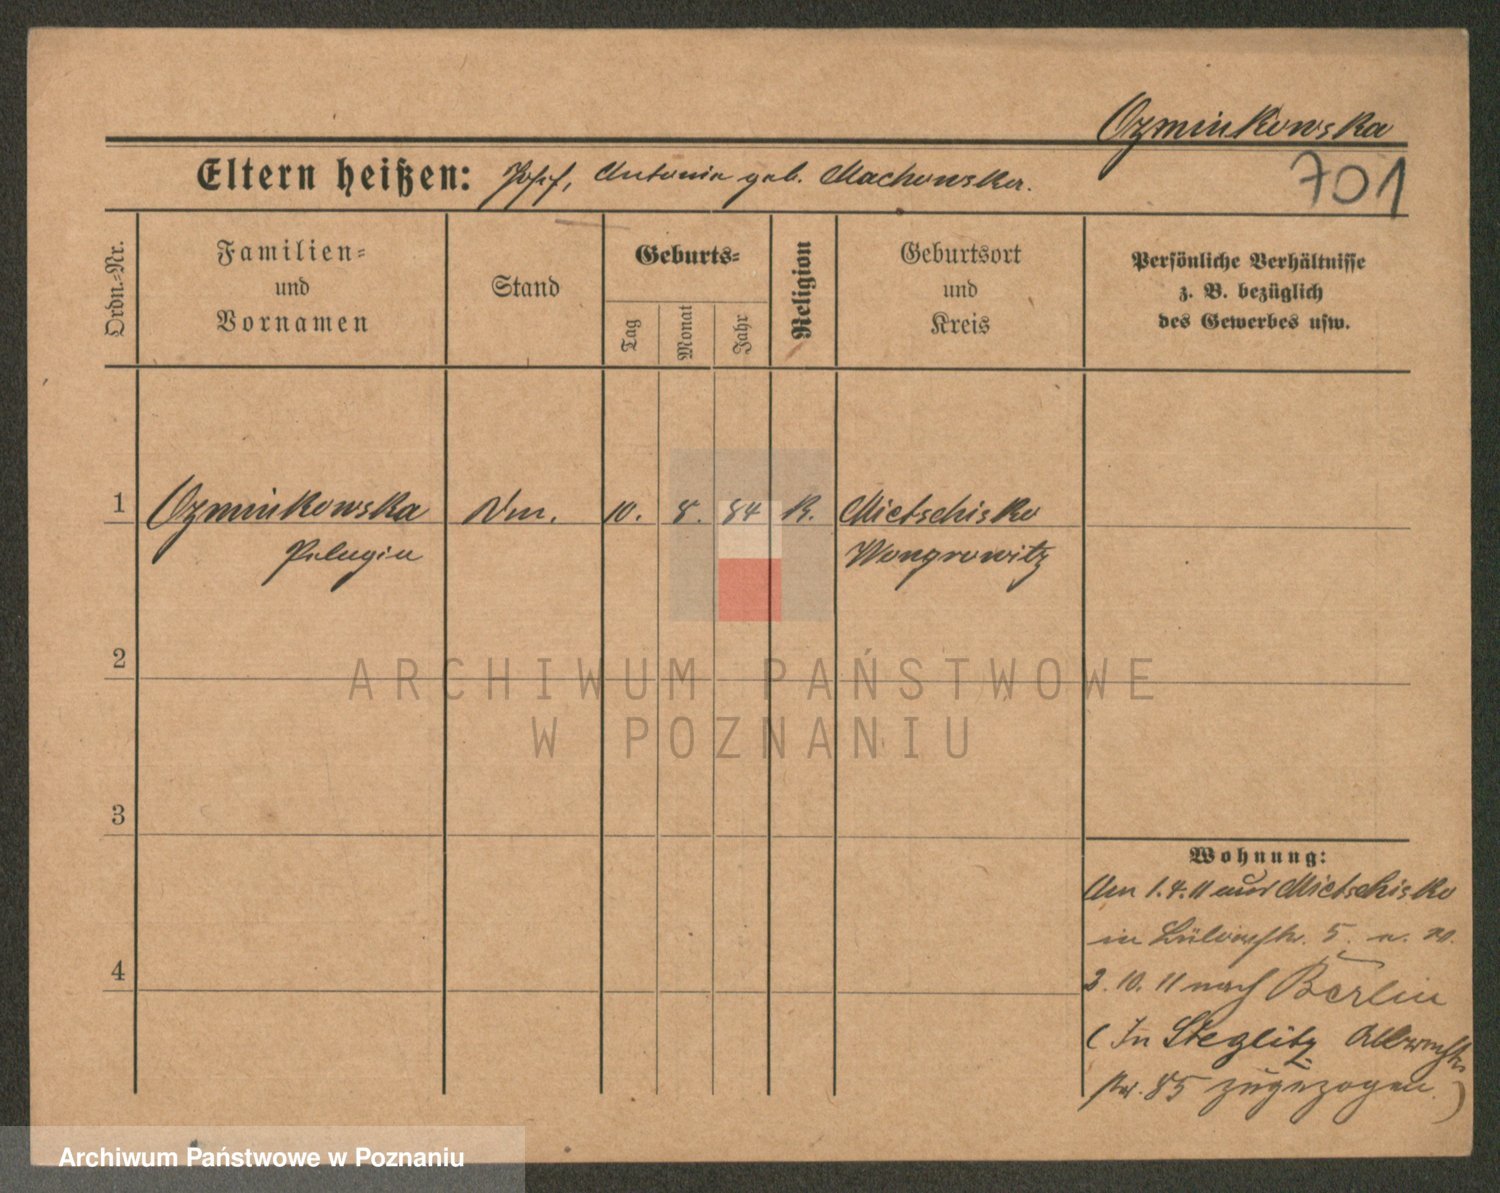 Ozminkowska
Eltern heißen: Josef, Antonie geb. Machowska.
701
Ordn.-Nr.
Familien-
und
Vornamen
Stand
Geburts-
Tag
Monat
Jahr
Religion
Geburtsort
und
Kreis
Persönliche Verhältnisse
z. B. bezüglich
des Gewerbes usw.
1 Ozminkowska 10. 8. 84 K. Mietschisko
Pelagia Wongrowitz
2
3
4
ARCHIWUM PAŃSTWOWE
W POZNANIU
Wohnung:
Am 1.4.11 aus Mietschisko
in 5.
3. 10. 11 nach Berlin
(In Steglitz Albrecht
str. 85 zugezogen.)
Archiwum Państwowe w Poznaniu